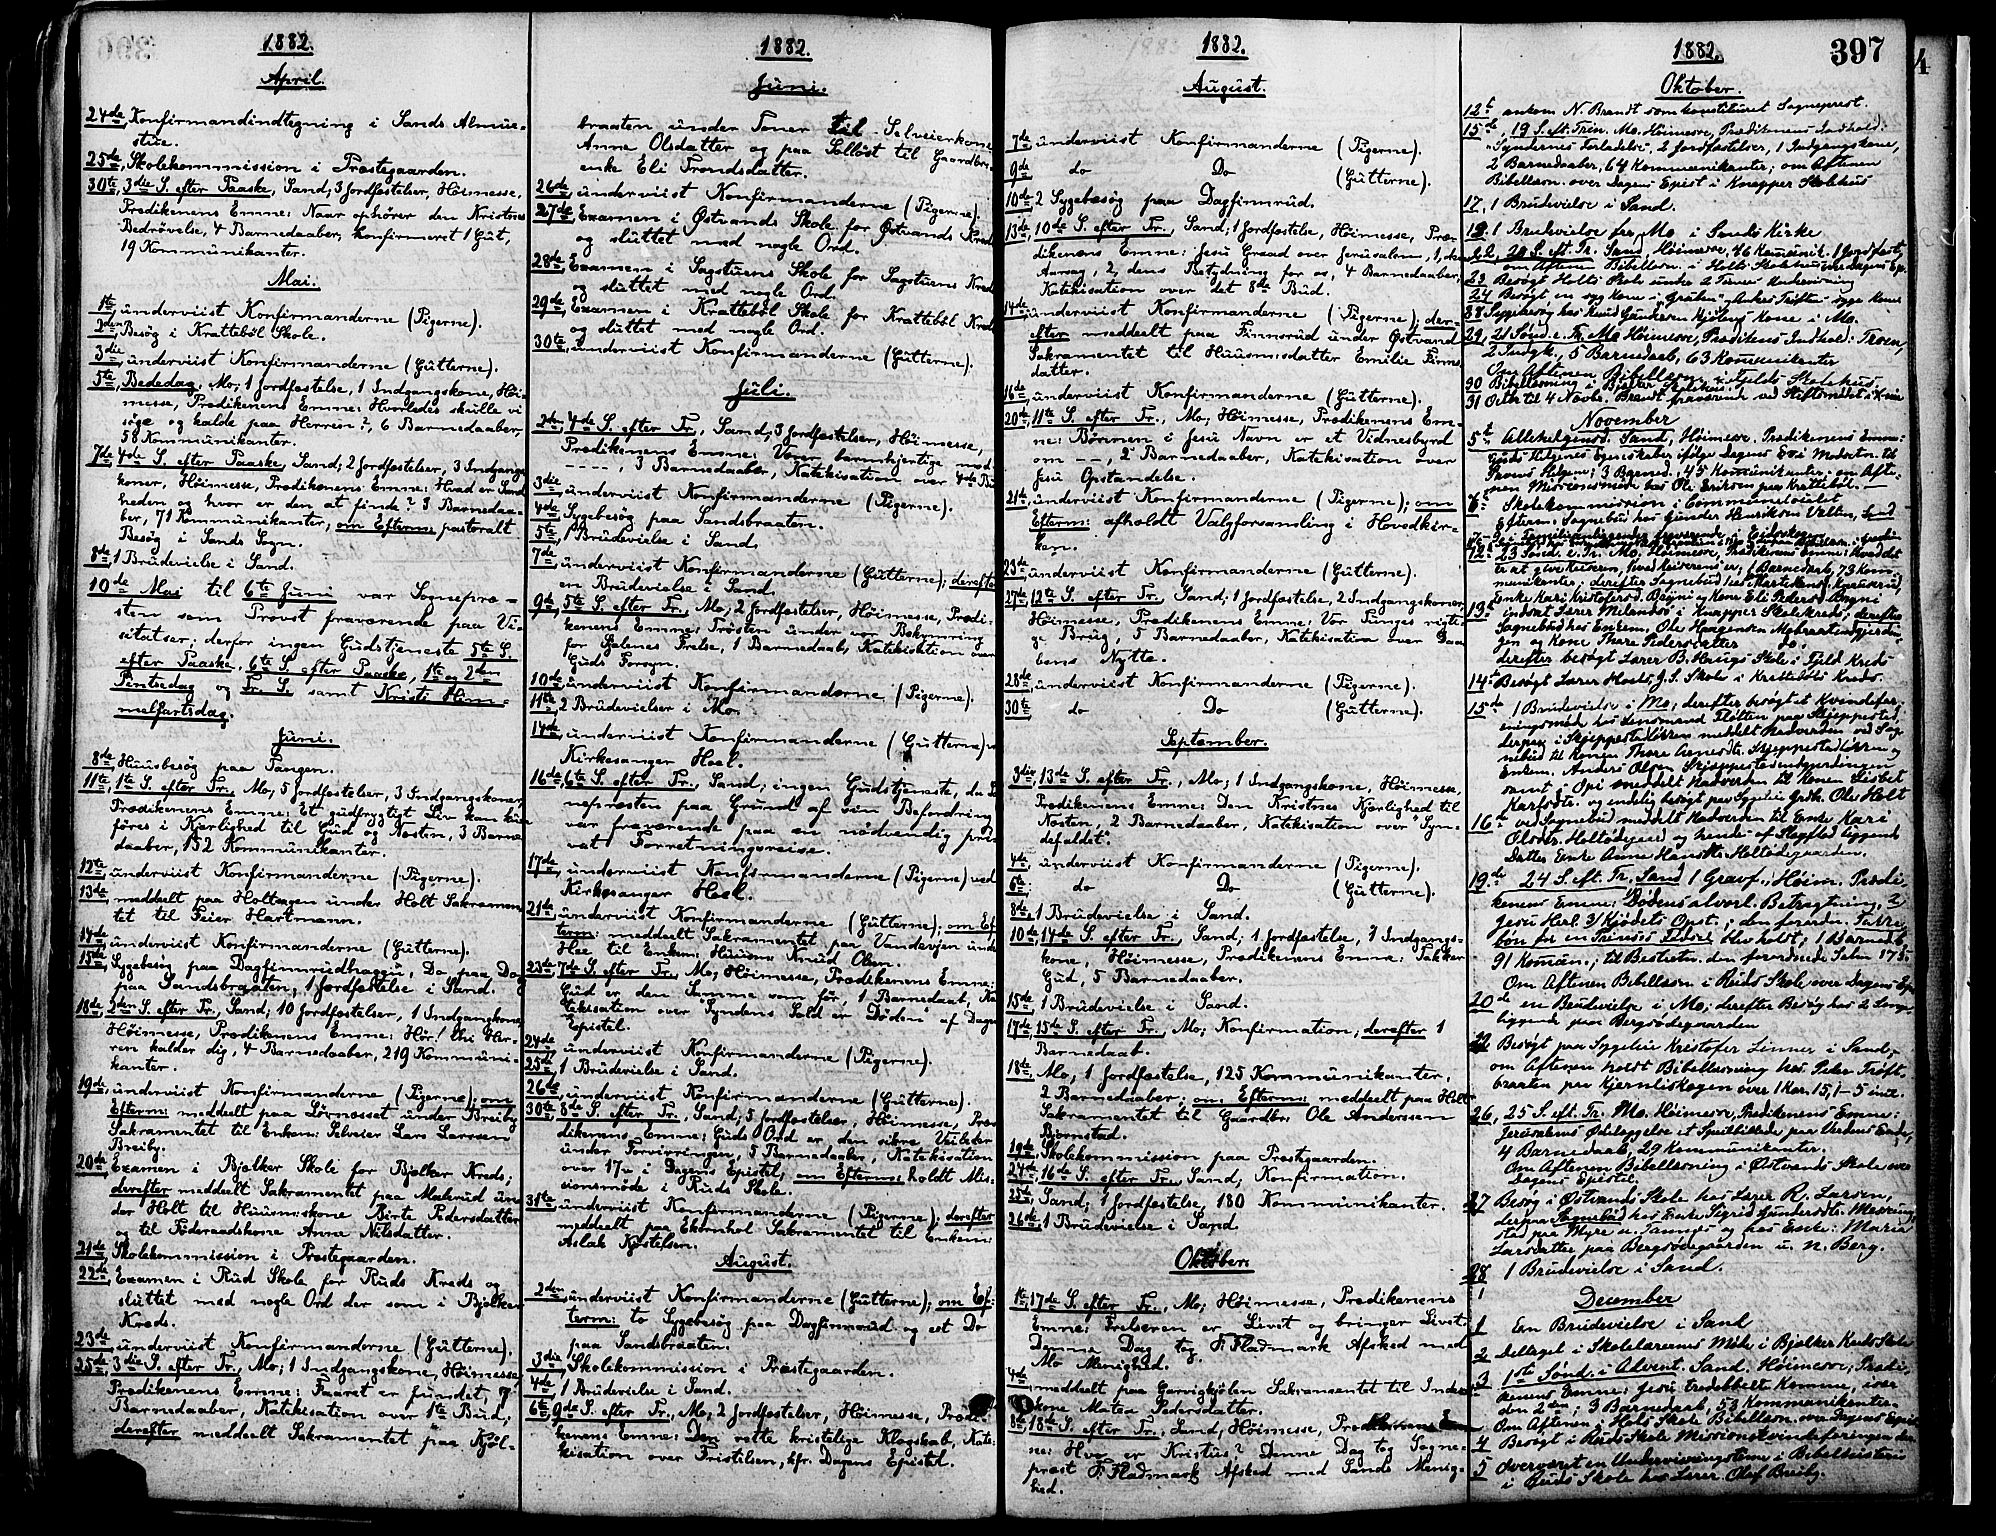 1882.
April.
24de, Konfirmandindtegning i Sands Almue-
stue.
25de, Skolekommission i Præstegaarden.
30te, 3die S. efter Paaske, Sand; 3 Jordfæstelser, Höimesse,
Prædikenens Emne: Naar ophörer den Kristnes
Bedrövelse, 4 Barnedaaber, konfirmeret 1 Gut,
19 Kommunikanter.
Mai.
1ste, underviist Konfirmanderne (Pigerne).
2den, Besög i Krattebøl Skole.
3die, underviist Konfirmanderne (Gutterne).
5te, Bededag, Mo; 1 Jordfæstelse, 1 Indgangskone, Höi-
messe, Prædikenens Emne: Hvorledes skulle vi
söge og kalde paa Herren?, 6 Barnedaaber,
58 Kommunikanter.
7de, 4de S. efter Paaske, Sand; 2 Jordfæstelser, 3 Indgangs-
koner, Höimesse, Prædikenens Emne: Hvad er Sand-
heden og hvor er den at finde? 3 Barnedaa-
ber, 71 Kommunikanter; om Efterm: pastoralt
Besög i Sands Sogn.
8de, 1 Brudevielse i Sand.
10de Mai til 6te Juni var Sognepræ-
sten som Provst fraværende paa Vi-
sitatser; derfor ingen Gudstjeneste 5te S.
efter Paaske, 6te S. efter Paaske, 1ste og 2den
Pintsedag og Tr. S. samt Kristi Him-
melfartsdag.
Juni.
8de, Huusbesög paa Tangen.
11te, 1ste S. efter Tr., Mo; 5 Jordfæstelser, 3 Indgangskoner,
Prædikenens Emne: Et gudfrygtigt Liv kan kun
föres i Kjærlighed til Gud og Næsten, 3 Barne-
daaber, 152 Kommunikanter.
12te, underviist Konfirmanderne (Pigerne).
13de, meddeelt paa Holthagen under Holt Sakramen-
tet til Feier Hartmann.
14de, underviist Konfirmanderne (Gutterne).
15de, Sygebesög paa Dagfinrudhagen, Do paa
paa Sandsbraaten, 1 Jordfæstelse i Sand.
18de, 2den S. efter Tr., Sand; 10 Jordfæstelser, 1 Indgangskone,
Höimesse, Prædikenens Emne: Hör! Thi Her-
ren kalder dig, 4 Barnedaaber, 219 Kommuni-
kanter.
19de, underviist Konfirmanderne (Pigerne); om
Efterm: meddeelt paa Lörnæsset under Breiby
Sakramentet til Enken: Selveier Lars Larssen
Breiby.
20de, Examen i Bjølker Skole for Bjølker Kreds;
derefter meddeelt Sakramentet paa Malerud un-
der Holt til Huusm:skone Birte Pedersdatter
og til Föderaadskone Anne Nilsdatter.
21de, Skolekommission i Præstegaarden.
22de, Examen i Rud Skole for Ruds Kreds og
sluttet med nogle Ord der som i Bjølker
Kreds.
23de, underviist Konfirmanderne (Gutterne).
25de, 3die S. efter Tr., Mo; 1 Indgangskone, Höimesse
Prædikenens Emne: Faaret er fundet, 7
Barnedaaber, Katekisation over 1ste Bud;
derefter meddeelt Sakramentet paa Kjöl-
1882.
Juni.
braaten under Toner til Selveierkone
Anne Olsdatter og paa Solløst til Gaardbr.
enke Eli Trondsdatter.
26de, underviist Konfirmanderne (Pigerne).
27de, Examen i Østvands Skole for Østvands Kreds
og sluttet med nogle Ord.
28de, Examen i Sagstuens Skole for Sagstuens Kreds
og sluttet med nogle Ord.
29de, Examen i Krattebøl Skole for Krattebøl Kreds
og sluttet med nogle Ord.
30te, underviist Konfirmanderne (Gutterne).
Juli.
2den, 4de S. efter Tr., Sand; 3 Jordfæstelser, Höimesse,
Prædikenens Emne: Vorer barmhjertige med
----, 3 Barnedaaber, Katekisation over 4de Bud
3die, underviist Konfirmanderne (Pigerne).
4de, Sygebesög paa Sandsbraaten.
5te, 1 Brudevielse i Sand.
7de, underviist Konfirmanderne (Gutterne); derefter
en Brudevielse i Sand.
9de, 5te S. efter Tr., Mo; 2 Jordfæstelser, Höimesse, Prædi-
kenens Emne: Trösten under vor Bekymring
for Sjelenes Frelse, 1 Barnedaab, Katekisation over
Guds Forsyn.
10de, underviist Konfirmanderne (Pigerne).
11te, 2 Brudevielser i Mo.
14de, underviist Konfirmanderne (Gutterne) v
Kirkesanger Hoel.
16de, 6te S. efter Tr., Sand; ingen Gudstjeneste, da
nepræsten paa Grund af sin Befordring
var fraværende paa en nödvendig pri-
vat Forretningsreise.
17de, underviist Konfirmanderne (Pigerne) ved
Kirkesanger Hoel.
21de, underviist Konfirmanderne (Gutterne); om Ef-
term: meddeelt Sakramentet paa Vandeveien under
Hee til Enken: Huusm: Knud Olsen.
23de, 7de S. efter Tr., Mo, Höimesse, Prædikenens Emne:
Gud er den Samme som för, 1 Barnedaab, Ka-
tekisation over "Syndens Sold er Döden" af Dagens
Epistel.
24de, underviist Konfirmanderne (Pigerne).
25de, 1 Brudevielse i Sand.
26de, underviist Konfirmanderne (Gutterne).
30te, 8de S. efter Tr., Sand; 5 Jordfæstelser, Höimesse, Præ-
dikenens Emne: Guds Ord er den sikre Veileder
under Forvirringen, 5 Barnedaaber, Katekisation
over 17v. i Dagens Epistel, om Efterm: holdt Mis-
sionsmöde i Ruds Skole.
31te, underviist Konfirmanderne (Pigerne); derefter
meddeelt paa Ekornhol Sakramentet til Enkem:
Aslak Kjostelsen.
August.
2den, underviist Konfirmanderne (Gutterne); om Ef-
term: to Sygebesög paa Dagfinrud og eet Do
paa Sandsbraaten.
3die, Skolekommission i Præstegaarden.
4de, 1 Brudevielse i Sand.
6te, 9de S. efter Tr., Mo, 2 Jordfæstelser, Höimesse, Prædi-
kenens Emne: Den rette kristelige Klogskab, Kate-
kisation over Fristelsen, kfr. Dagens Epistel.
1882.
August.
7de, underviist Konfirmanderne (Pigerne).
9de, do Do (Gutterne).
10de, 2 Sygebesög paa Dagfinrud.
13de, 10de S. efter Tr., Sand; 1 Jordfæstelse, Höimesse, Præ-
dikenens Emne: Jesu Graad over Jerusalem, 1, dens
Aarsag, 2, dens Betydning for os, 4 Barnedaaber,
Katekisation over det 8de Bud.
14de, underviist Konfirmanderne (Pigerne); der-
efter meddeelt paa Finnsrud under Østvand
Sakramentet til Huusm:datter Emilie Finns-
datter.
16de, underviist Konfirmanderne (Gutterne).
20de, 11te S. efter Tr., Mo, Höimesse, Prædikenens Em-
ne: Bönnen i Jesu Navn er et Vidnesbyrd
om --, 2 Barnedaaber, Katekisation over
Jesu Opstandelse.
21de, underviist Konfirmanderne (Pigerne); om
Efterm: afholdt Valgforsamling i Hovedkir-
ken.
23de, underviist Konfirmanderne (Gutterne).
27de, 12te S. efter Tr., Sand; 1 Jordfæstelse, 2 Indgangskoner,
Höimesse, Prædikenens Emne: Vor Tunges rigti-
ge Brug, 5 Barnedaaber, Katekisation over Daa-
bens Nytte.
28de, underviist Konfirmanderne (Pigerne).
30te, do Do (Gutterne).
September.
3die, 13de S. efter Tr., Mo; 1 Indgangskone, Höimesse,
Prædikenens Emne: Den Kristnes Kjærlighed til
Næsten, 2 Barnedaaber, Katekisation over "Syn-
defaldet".
4de, underviist Konfirmanderne (Pigerne).
6te, do Do (Gutterne).
8de, 1 Brudevielse i Sand.
10de, 14de S. efter Tr., Sand; 1 Jordfæstelse, 7 Indgangs-
kone, Höimesse, Prædikenens Emne: Takker
Gud, 5 Barnedaaber.
15de, 1 Brudevielse i Sand.
17de, 15de S. efter Tr., Mo; Konfirmation; derefter 1
Barnedaab.
18de, Mo, 1 Jordfæstelse, 125 Kommunikanter,
2 Barnedaaber; om Efterm: meddeelt paa Holt
Sakramentet til Gaardbr. Ole Anderssen
Bjørnstad.
19de, Skolekommission paa Præstgaarden.
24de, 16de S. efter Tr., Sand, Konfirmation.
25de, Sand; 1 Jordfæstelse, 180 Kommunikanter.
26de, 1 Brudevielse i Sand
Oktober.
1ste, 17de S. efter Tr., Mo; Höimesse, Prædikenens
Emne: Frelseren er Livet og bringer Livet.
Denne Dag tog F. Fladmark Afsked med
Mo Menighed.
4de, meddeelt paa Garvigkjølen Sakramentet til Inder-
kone Maten Pedersdatter.
8de, 18de S. efter Tr., Sand, Höimesse, Prædikenens Em-
ne: Hvo er Kristus? Denne Dag tog Sogne-
præst F. Fladmark Afsked med Sands Menig-
hed.
1882.
397
4
Oktober.
12te ankom N. Brandt som konstitueret Sognepræst.
15de, 19 S. eft. Trin. Mo, Höimesse, Prædikenens Indhold:
"Syndernes Forladelse", 2 Jordfæstelser, 1 Indgangskone,
2 Barnedaaber, 64 Kommunikanter; om Aftenen
Bibellæsn. over Dagens Epist i Knapper Skolehus
17, 1 Brudevielse i Sand.
19, 1 Brudevielse fra Mo i Sands Kirke
22, 20 S. eft. Tr. Sand, Höimesse, 46 Kommunik. 1 Jordfæst,
om Aftenen Bibellæsn. i Holts Skolehus over Dagens Ep.
23 Besøgt Holts Skole under 2 Timers Undervisning
24 Besøgt en syg Kone
28 Sygebesøg hos Knud Gundersen Kone i Mo.
29, 21 Sønd. e. Tr. Mo Höimesse, Prædikens Indhold: Troen,
2 Indgk., 5 Barnedaab, 63 Kommunikanter
Om Aftenen Bibellæsn. i Fjelds Skolehus
30 Bibellæsning i Bjølker Skolehus
31 Octbr til 4 Novbr. Brandt fraværende ved Stiftsmødet i Kr.ia
November
5te Allehelgensd. Sand, Höimesse. Prædikenens Emne:
Guds Helgenes Egenskaber ifølge Dagens Evi
3 Barned., 45 Kommunikanter; om Afte-
nen Missionsmøde hos Ole Eriksen paa Krattebøl.
6te Skolekommission i Communelocalet
Efterm: Sognebud hos Gjorder Henriksen Velten, Sand
12te 23 Sønd. e. Tr. Mo, Höimesse, Prædikenens Emne: Hvad det
er at give Keiseren, hvad Keiserens er; 1 Barnedaab, 73 Kom-
munikanter; derefter Sognebud hos
Enke Kari Kristofersd. Bagni og Kone Eli Pedersd. Bagni
13de indsat Lærer Milensø i Knapper Skolekreds, derefter
Sognebud hos Enkem. Ole Haagensen
og Kone Thore Pedersdatter do.
derefter besøgt Lærer B. Haugs Skole i Fjeld Kreds
14de Besøgt Lærer Hoels J.S. Skole i Krattebøls Kreds.
15de 1 Brudevielse i Mo; derefter besøgt et Kvindefor-
eningsmøde hos Lensmand Fløtten paa Skjeppestad,
derpaa i Skjeppestadlikken meddelt Nadverden ved Sog-
nebud til Konen Thore Arnesdt. Skjeppestadlikken og
Enkem. Anders Olsen Skjeppestadenhjerdingen
samt i Opi meddelt Nadverden til Konen Lisbet
Karlsdt. og endelig besøgt paa Sygeleie Grdbr. Ole Holt
16de ved Sognebud meddelt Nadverden til Enke Kari
Olsdtr. Holtødegaard og hendes af Slagflod liggende
Datter Enke Anne Hansdtr. Holtødegaarden.
19de 24 S. eft. Tr. Sand 1 Gravf.; Höim. Prædi-
kenens Emne: Dødens alvorl. Betragtning, 2
Jesu Herl. 3/ Kjødets Opst.; den foreskr. Takke-
bøn for en Prinses Fødsel blev holdt; 1 Barnedb
91 Komun.; til Bestretn. den forordnede Salme 175.
Om Aftenen Bibellæsn i Ruds Skole over Dagens Epi
20de en Brudevielse i Mo; derefter Besøg hos 2 Senge-
liggende paa Bergsødegaarden
22 Besøgt paa Sygeleie Kristofer Linner i Sand,
om Aftenen holdt Bibellæsning hos Peder Trøft-
braaten paa Kjernliskogen over 1 Kor. 15, 1–5 incl.
26, 25 S. eft. Tr. Mo. Höimesse, Prædikenens Emne:
Jerusalems Ødelæggelse et Speilbillede paa Verdens Ende,
4 Barnedaab, 29 Kommunikanter.
Om Aftenen Bibellæsning i Østvands Skole over
Dagens Epistel.
27 Besøg i Østvands Skole hos Lærer R. Larsen,
derpaa Sognebud hos Enke Sigrid Gundersdt.
sted paa Myre u. Tangnes og hos Enke Maria
Larsdatter paa Bergsødegaarden u. N. Berg.
28 1 Brudevielse i Sand.
December
1 En Brudevielse i Sand
2 Deltaget i Skolelærernes Møde i Bjølker Kreds Skole
3 1ste Sønd. i Advent. Sand. Höimesse, Prædi-
kenens Emne: Jesu tredobbelt Komme, især
den 2den; 3 Barnedaab, 53 Kommunikanter
Om Aftenen i Holts Skole Bibellæsn. over Dagens Epist
4 Besøgt i Ruds Skole Missionskvindeforeningen der.
5 Overværet en Undervisningstime i Bibelhistorie
i Ruds Skole hos Lærer Oluf Breiby.